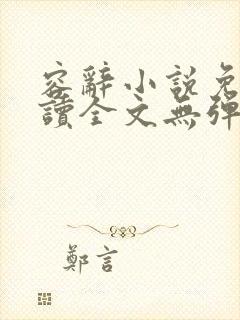 容辭小説免
讀全文無彈
鄭言